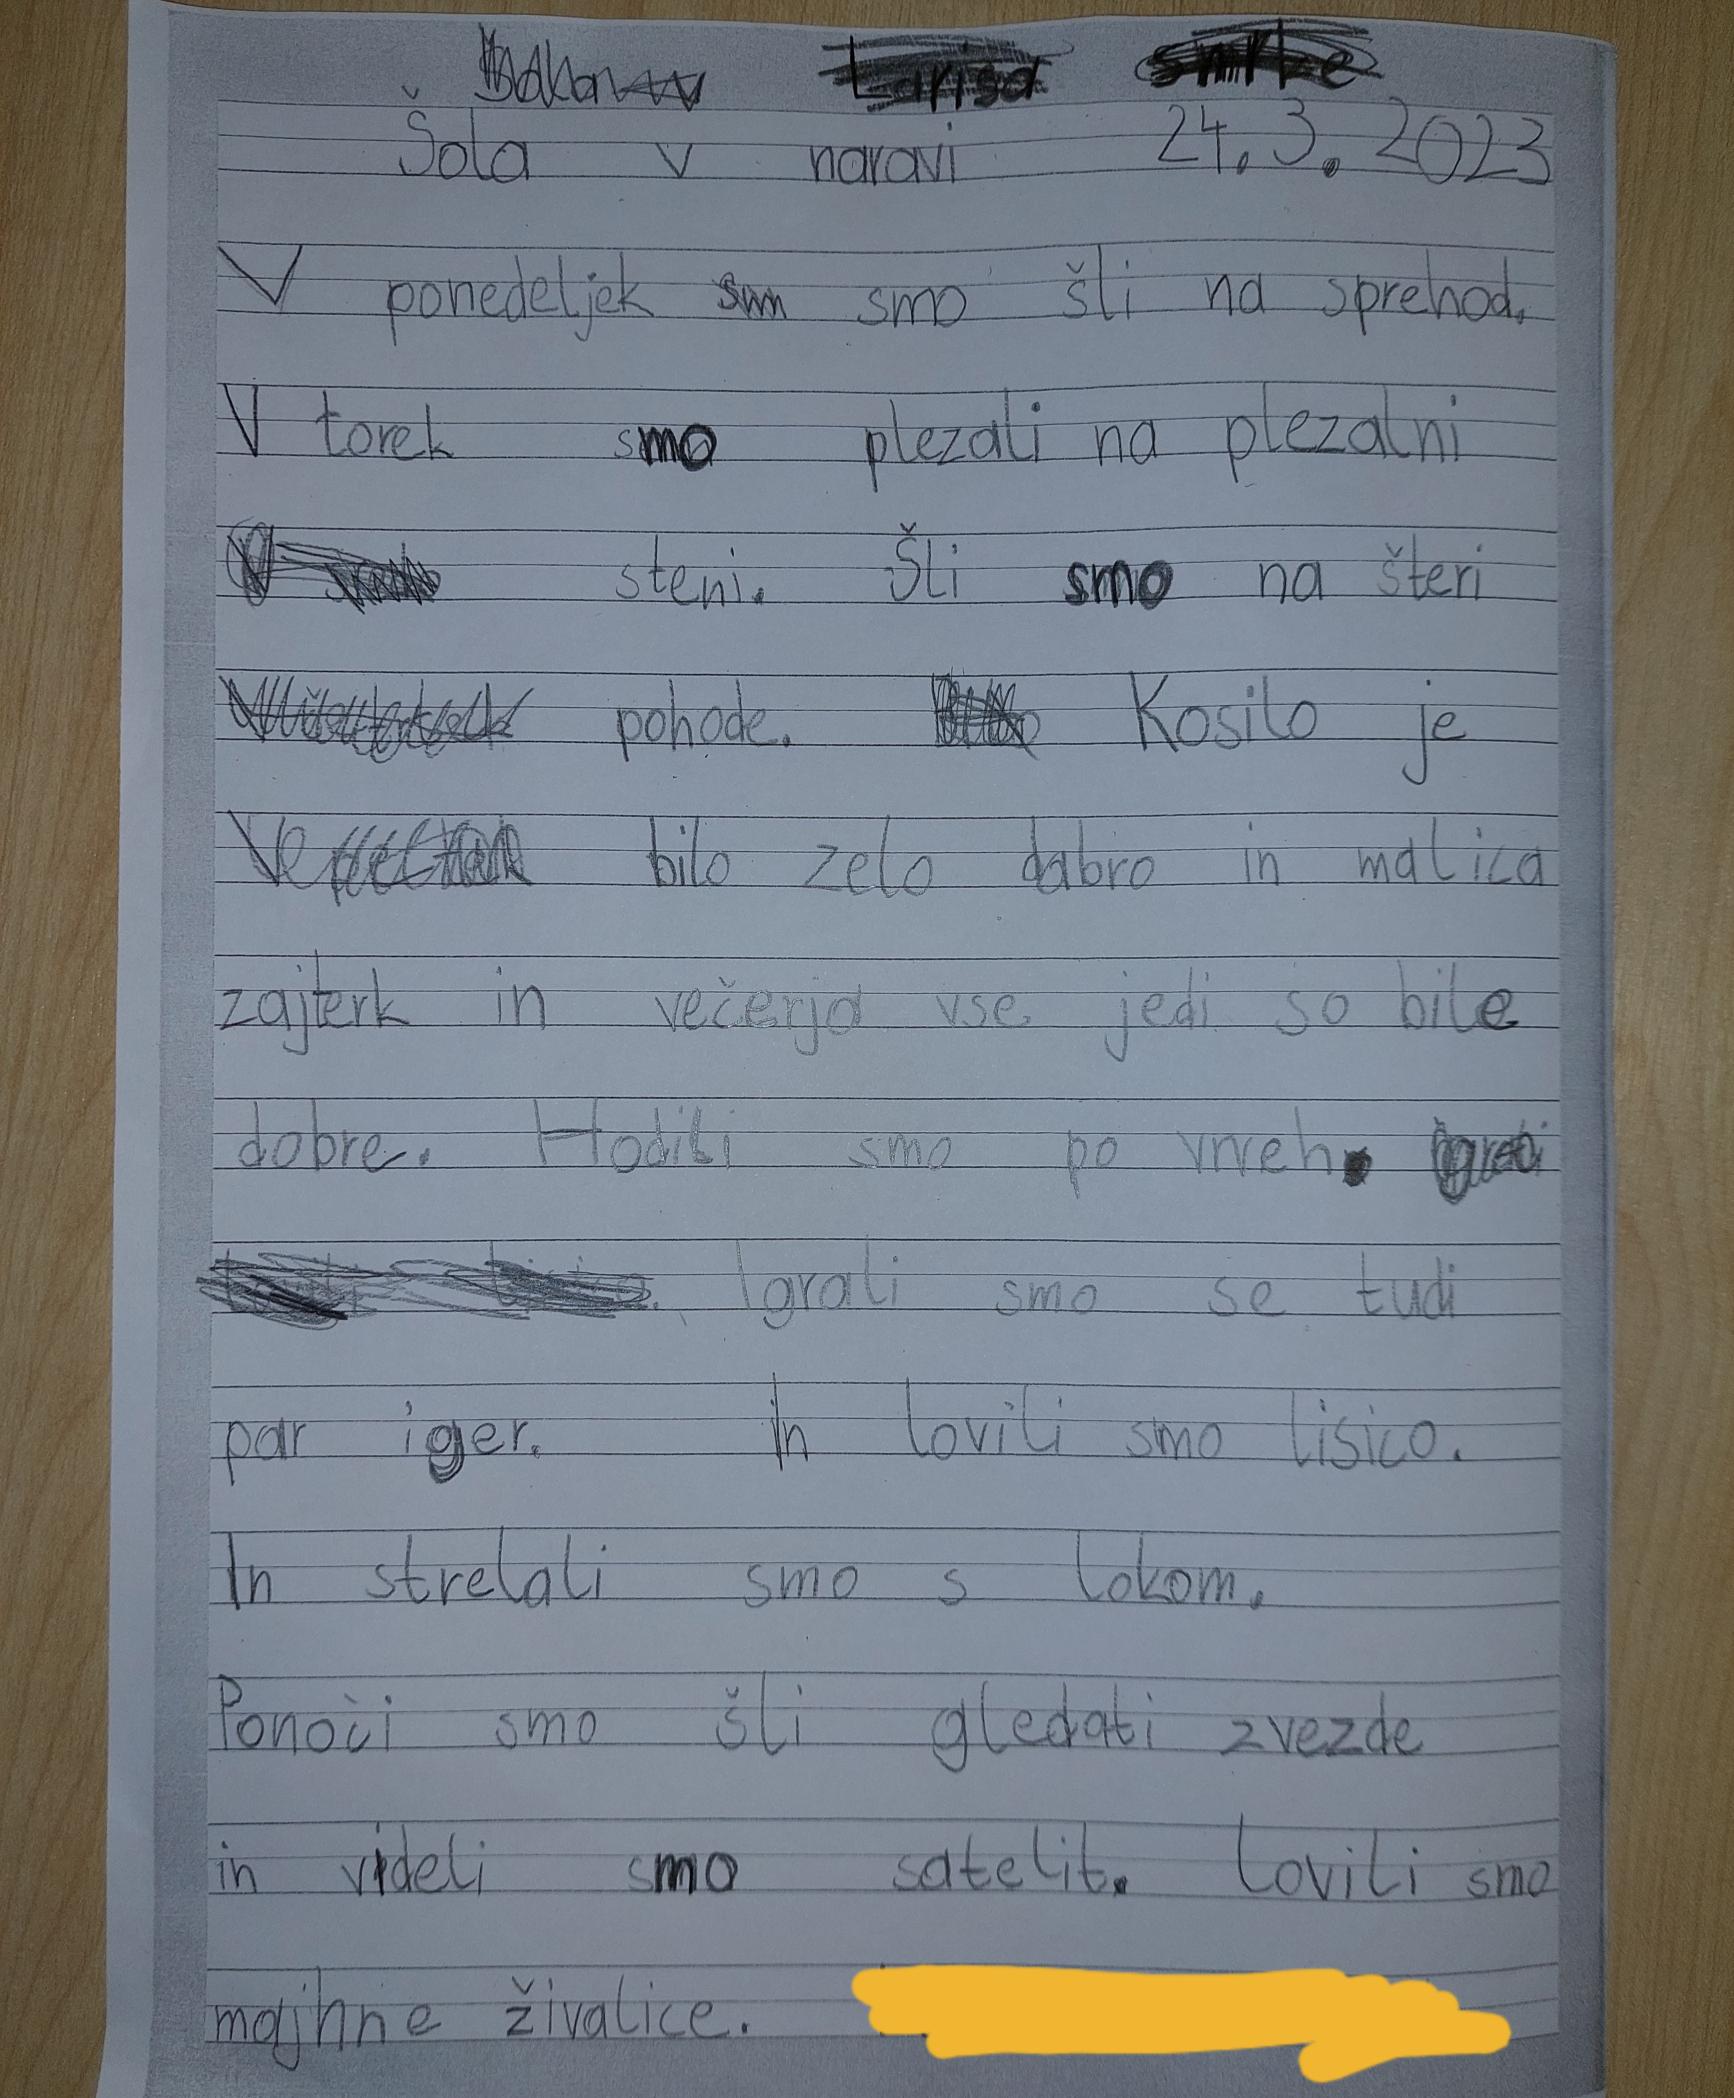 Šola v naravi 24. 3. 2023
V ponedeljek smo šli na sprehod.
V torek smo plezali na plezalni
steni. Šli smo na šteri
pohode. Kosilo je
bilo zelo dabro in malica
zajterk in večerja vse jedi so bile
dobre. Hodili smo po vrveh.
Igrali smo se tudi
par iger. In lovili smo lisico.
In strelali smo s lokom.
Ponoči smo šli gledati zvezde
in videli smo satelit. lovili smo
majhne živalice.